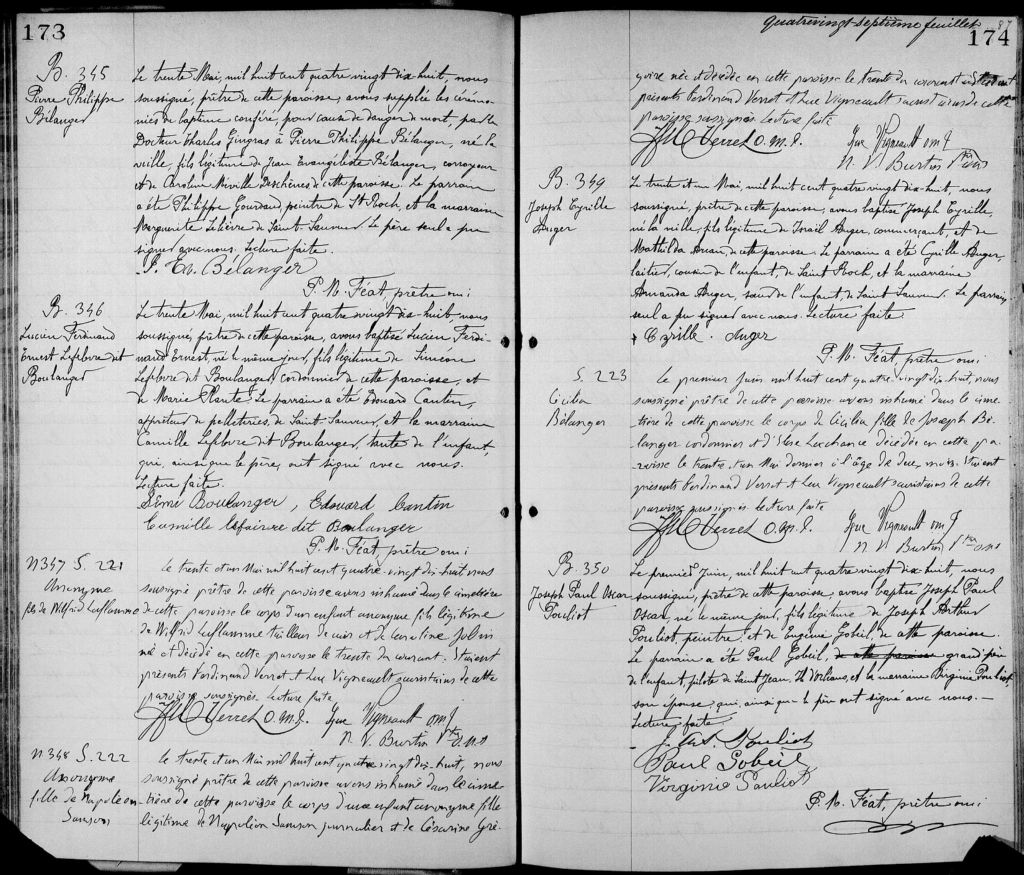 173
B. 345
Pierre Philippe
Bélanger
Le trente Mai, mil huit cent quatre vingt dix-huit, nous
soussigné, prêtre de cette paroisse, avons suppléé les cérémo-
nies de baptême conféré, pour cause de danger de mort, par le
Docteur Charles Gingras à Pierre Philippe Bélanger, né la
veille, fils légitime de Jean Evangeliste Bélanger, corroyeur
et de Caroline Miville Deschênes de cette paroisse. Le parrain
a été Philippe Gourdeau, peintre de St Roch, et la marraine
Marguerite Lelièvre de Saint-Sauveur. Le père seul a pu
signer avec nous. Lecture faite.
J. Ev. Bélanger
P. M. Féat, prêtre omi
B. 346
Lucien Ferdinand
Ernest Lefebvre dit
Boulanger
Le trente Mai, mil huit cent quatre vingt dix-huit nous
soussigné, prêtre de cette paroisse, avons baptisé Lucien Ferdi-
nand Ernest, né le même jour, fils légitime de Siméon
Lefebvre dit Boulanger, cordonnier de cette paroisse, et
de Marie Plante. Le parrain a été Edouard Cantin,
apprêteur de pelleteries, de Saint-Sauveur, et la marraine
Camille Lefebvre dit Boulanger, tante de l'enfant,
qui, ainsi que le père, ont signé avec nous.
Lecture faite.
Simé Boulanger, Edouard Cantin
Camille lefaivre dit Boulanger
P. M. Féat, prêtre omi
N 347 S. 221
Anonyme
fils de Wilfrid Laflamme
Le trente et un Mai mil huit cent quatre-vingt dix-huit nous
soussigné prêtre de cette paroisse avons inhumé dans le cimetière
de cette paroisse le corps d'un enfant anonyme fils légitime
de Wilfrid Laflamme tailleur de cuir et de Caroline Jobin
né et décédé en cette paroisse le trente du courant. Etaient
présents Ferdinand Verret et Luc Vigneault sacristains de cette
paroisse soussignés lecture faite
F Verret O.M.I. Luc Vigneault om I
N. V. Burtin Ptre O.M.I
N 348 S. 222
Anonyme
fille de Napoléon
Samson
Le trente et un Mai mil huit cent quatre vingt dix-huit, nous
soussigné prêtre de cette paroisse avons inhumé dans le cime-
tière de cette paroisse le corps d'une enfant anonyme fille
légitime de Napoléon Samson journalier et de Césarine Gré-
quatrevingt-septième feuillet
87
174
goire née et décédée en cette paroisse le trente du courant Etaient
présents Ferdinand Verret et Luc Vigneault sacristains de cette
paroisse soussignés lecture faite
F Verret O.M.I. Luc Vigneault om I
N. V. Burtin Ptre omi
B. 349
Joseph Cyrille
Auger
Le trente et un Mai, mil huit cent quatre vingt dix-huit, nous
soussigné, prêtre de cette paroisse, avons baptisé Joseph Cyrille,
né la veille, fils légitime de Israïl Auger, commerçant, et de
Mathilda de cette paroisse. Le parrain a été Cyrille Auger,
laitier, cousin de l'enfant de Saint Roch, et la marraine
Amanda Auger, sœur de l'enfant, de Saint Sauveur. Le parrain
seul a pu signer avec nous. Lecture faite.
Cyrille Auger
P. M. Féat, prêtre omi
S. 223
Cécilia
Bélanger
Le premier Juin mil huit cent quatre-vingt dix-huit, nous
soussigné prêtre de cette paroisse avons inhumé dans le cime-
tière de cette paroisse le corps de Cécilia fille de Joseph Bé-
langer cordonnier et d'Elise Lachance décédée en cette pa-
roisse le trente et un Mai dernier à l'âge de deux mois. Etaient
présents Ferdinand Verret et Luc Vigneault sacristains de cette
paroisse soussignés lecture faite
F Verret O.M.I. Luc Vigneault om I
N. V. Burtin Ptre omi
B. 350
Joseph Paul Oscar
Pouliot
Le premier Juin, mil huit cent quatre vingt dix huit, nous
soussigné, prêtre de cette paroisse, avons baptisé Joseph Paul
Oscar, né le même jour, fils légitime de Joseph Arthur
Pouliot, peintre, et de Eugénie Gobeil, de cette paroisse.
Le parrain a été Paul Gobeil, de cette paroisse grand-père
de l'enfant, pilote de Saint Jean, Il d'Orléans, et la marraine Virginie Pouliot,
son épouse, qui, ainsi que le père ont signé avec nous.
Lecture faite.
J. Art. Pouliot
Paul Gobeil
Virginie Pouliot
P. M. Féat, prêtre omi